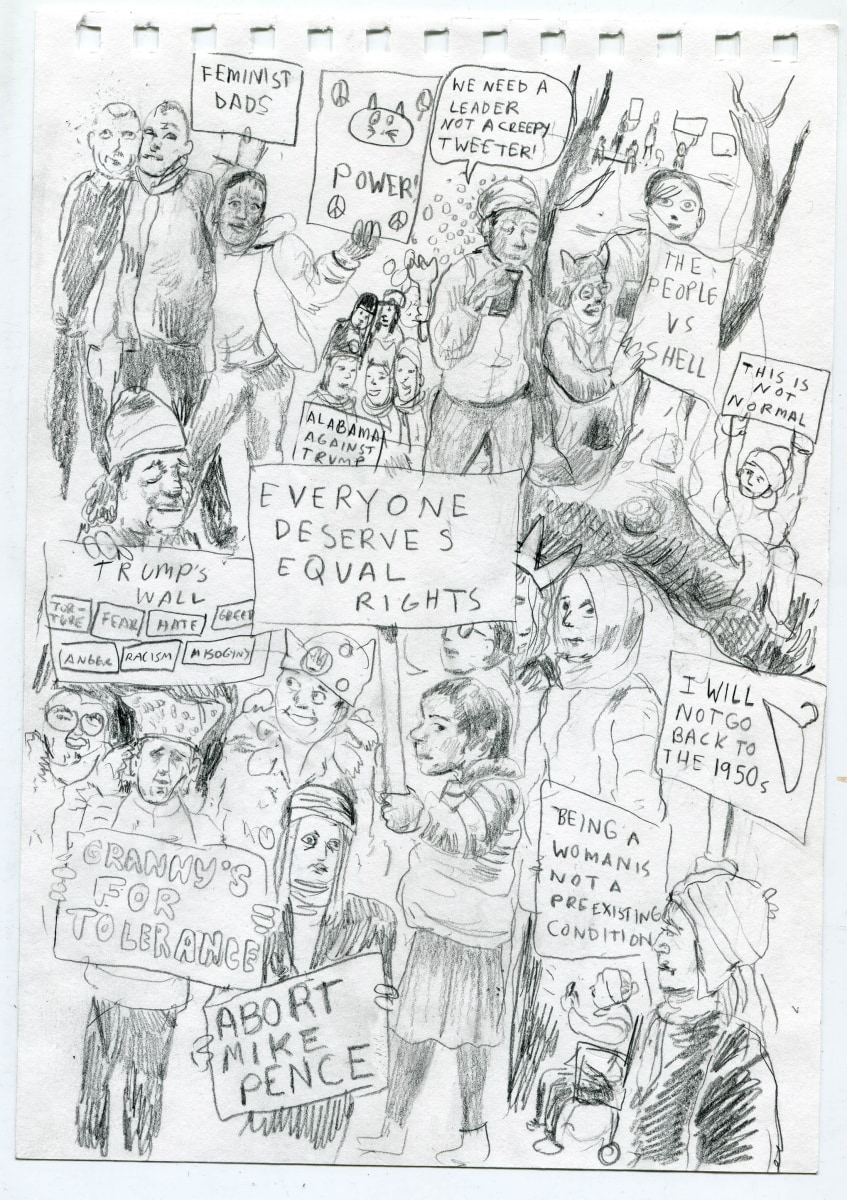 FEMINIST
DADS
POWER!
WE NEED A
LEADER
NOT A CREEPY
TWEETER!
THE
PEOPLE
VS
SHELL
THIS IS
NOT
NORMAL
ALABAMA
AGAINST
TRUMP
EVERYONE
DESERVES
EQUAL
RIGHTS
TRUMP'S
WALL
TOR-
TURE
FEAR
HATE
GREED
ANGER
RACISM
MISOGINY
I WILL
NOT GO
BACK TO
THE 1950s
BEING A
WOMAN IS
NOT A
PREEXISTING
CONDITION
GRANNY'S
FOR
TOLERANCE
ABORT
MIKE
PENCE